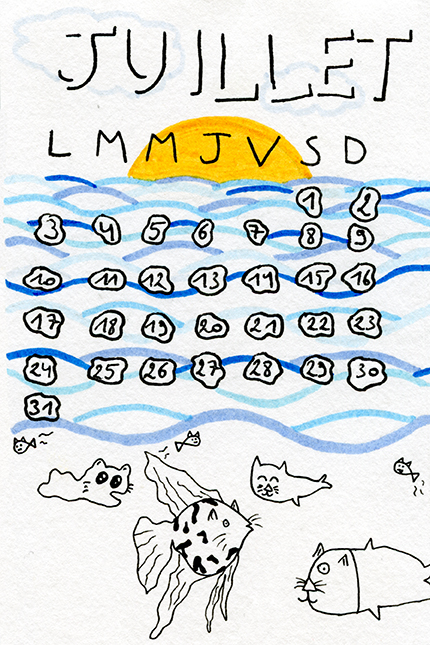 JUILLET
L M M J V S D
1 2
3 4 5 6 7 8 9
10 11 12 13 14 15 16
17 18 19 20 21 22 23
24 25 26 27 28 29 30
31